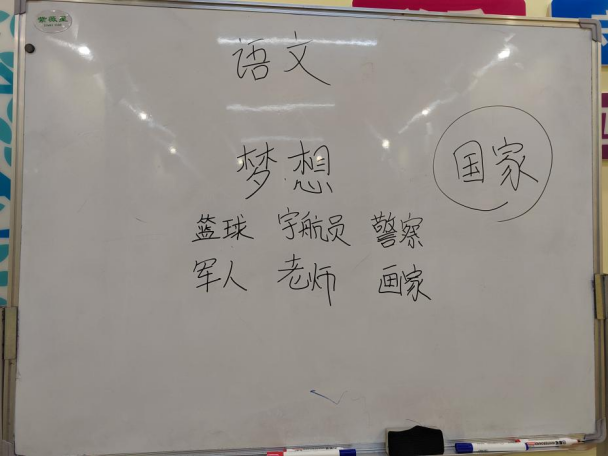 语文
梦想
国家
篮球 宇航员 警察
军人 老师 画家